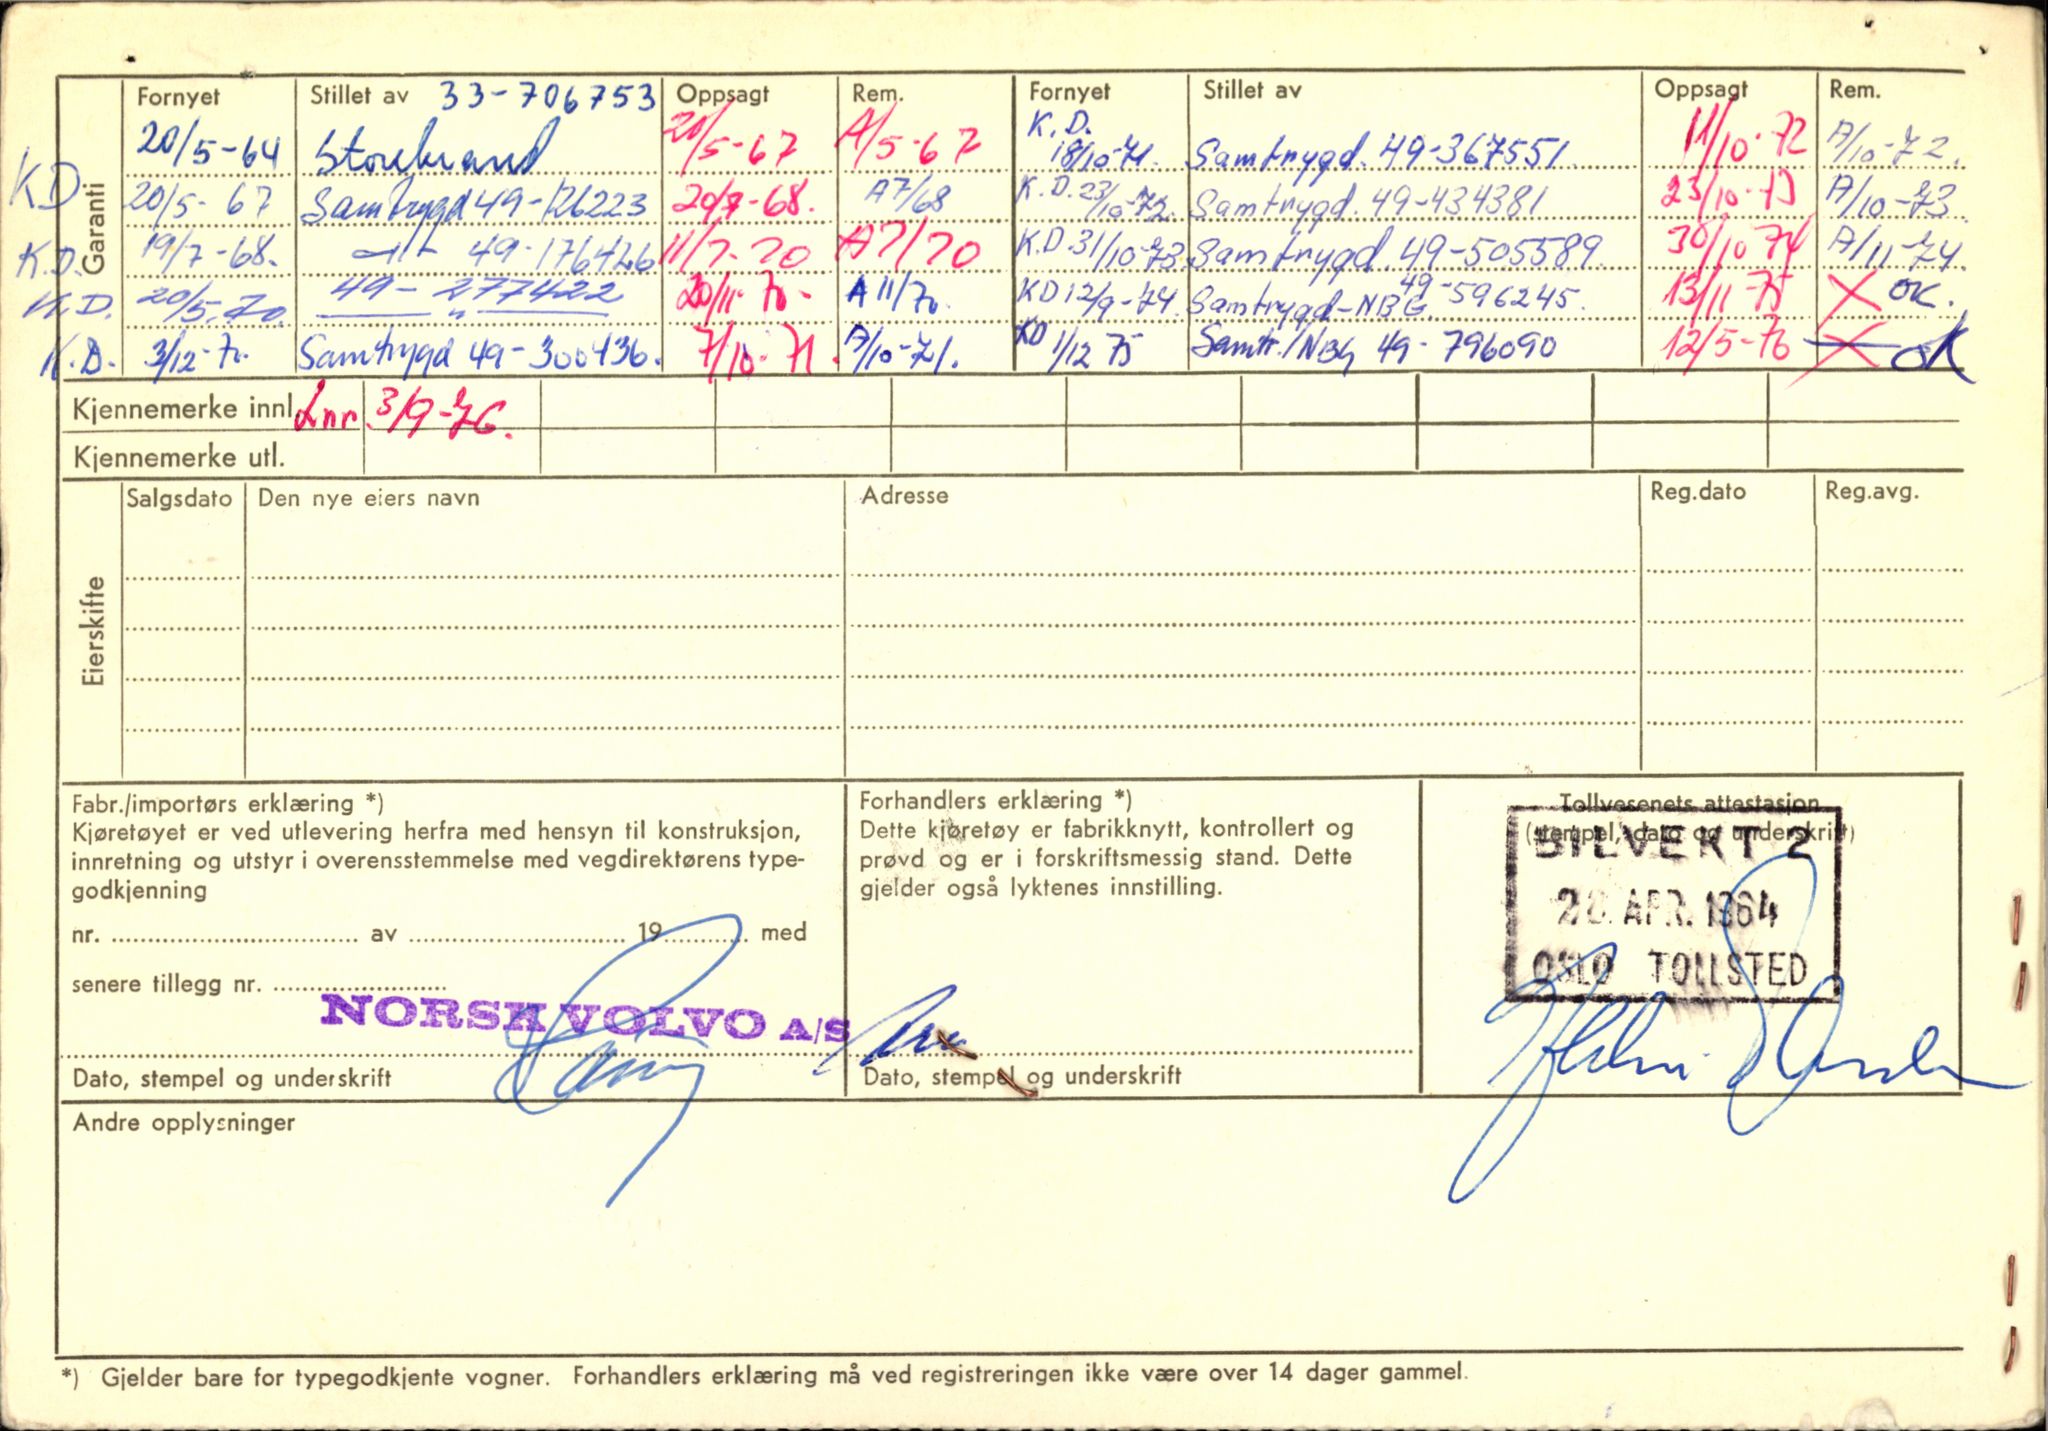 Garanti
Fornyet Stillet av 33-706753 Oppsagt Rem. Fornyet Stillet av Oppsagt Rem.
20/5-64 Storebrand 20/5-67 A/5-67 K.D. 18/10-71. Samtrygd. 49-367551. 11/10-72 A/10-72.
KD 20/5-67 Samtrygd 49-126223 20/7-68. A7/68 K.D. 23/10-72. Samtrygd. 49-434381 23/10-73 A/10-73.
K.D. 19/7-68. 49-176426 11/7-70 A7/70 K.D. 31/10-73. Samtrygd. 49-505589. 30/10 74 A/11-74.
K.D. 20/5-70. 49-277422 20/11-70- A 11/70. KD 12/9-74. Samtrygd-NBG. 49-596245. 13/11-75 X OK.
K.D. 3/12-70. Samtrygd 49-300436. 7/10-71. A/10-71. KD 1/12 75 Samtr./NBG 49-796090 12/5-76 X OK
Kjennemerke innl. Lnr. 3/9-76.
Kjennemerke utl.
Eierskifte
Salgsdato Den nye eiers navn Adresse Reg.dato Reg.avg.
Fabr./importørs erklæring *)
Kjøretøyet er ved utlevering herfra med hensyn til konstruksjon,
innretning og utstyr i overensstemmelse med vegdirektørens type-
godkjenning
nr. av 19 med
senere tillegg nr.
NORSK VOLVO A/S
Dato, stempel og underskrift
Forhandlers erklæring *)
Dette kjøretøy er fabrikknytt, kontrollert og
prøvd og er i forskriftsmessig stand. Dette
gjelder også lyktenes innstilling.
Dato, stempel og underskrift
Tollvesenets attestasjon
(stempel, dato og underskrift)
BILVEKT 2
APR. 1964
OSLO TOLLSTED
Andre opplysninger
*) Gjelder bare for typegodkjente vogner. Forhandlers erklæring må ved registreringen ikke være over 14 dager gammel.